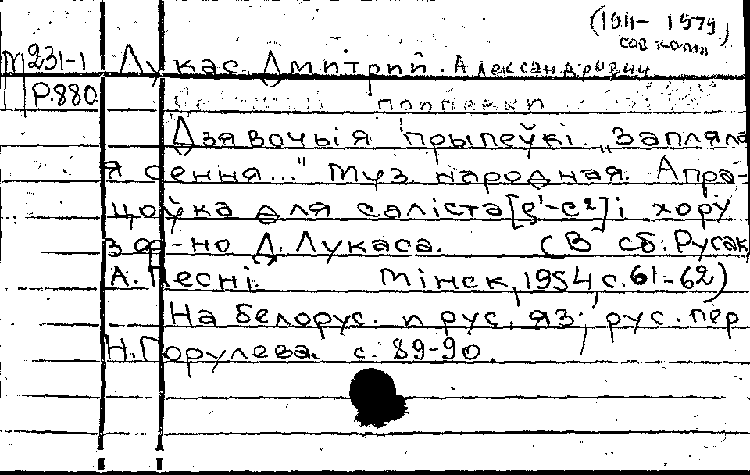 (1911- 1979)
сов композ
М231-1 Лукас Дмитрий Александрович
Р.880 припевки
Дзявочыя прыпеўкі „Запляла
я сення..." Муз. народная. Апра-
цоўка для саліста [g¹-c²] і хору
з ф-но Д. Лукаса. (В сб. Русак
А. Песні. Мінск, 1954, с. 61-62)
На белорус. и рус. яз; рус. пер
Н. Горулева. с. 89-90.